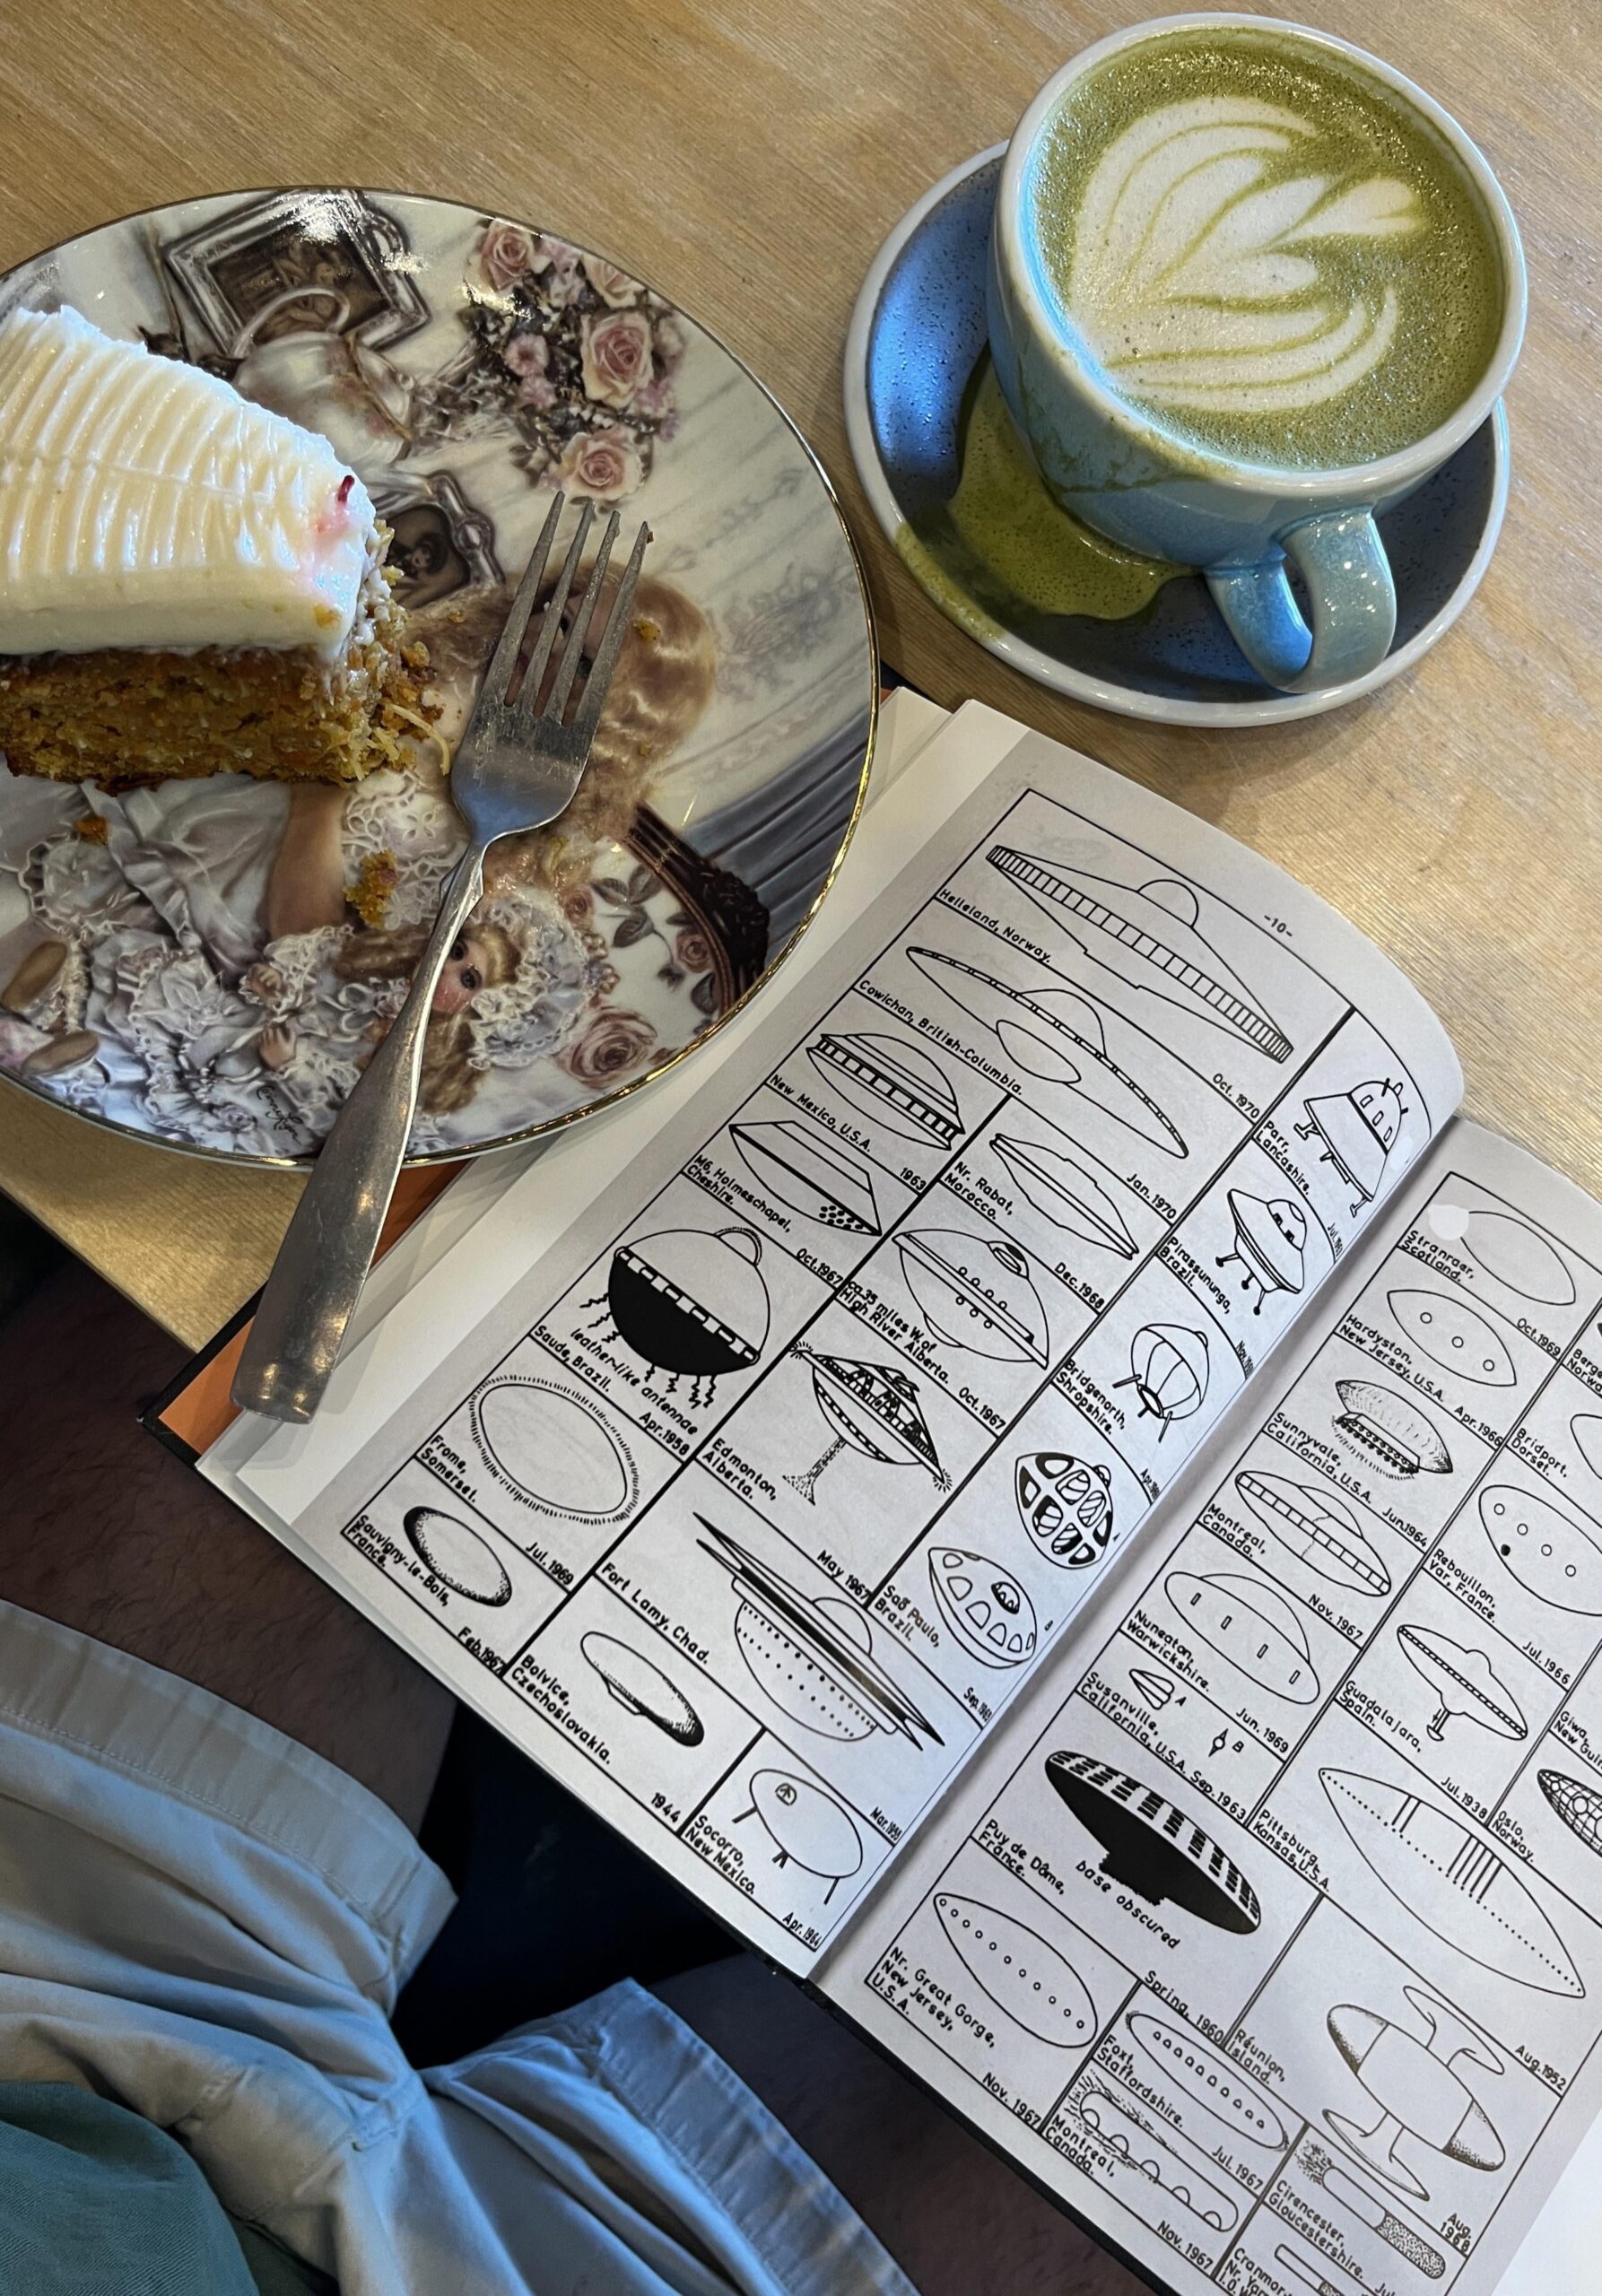 -10-
Helleland, Norway.
Oct. 1970
Cowichan, British-Columbia.
Jan. 1970
New Mexico, U.S.A.
1963
Nr. Rabat,
Morocco.
Dec. 1968
M6, Holmeschapel,
Cheshire.
Oct. 1967
ca.35 miles W. of
High River Alberta.
Oct. 1967
leather-like antennae
Saude, Brazil.
Apr. 1958
Edmonton,
Alberta.
May 1967
Frome,
Somerset.
Jul. 1969
Fort Lamy, Chad.
Sauvigny-le-Bois,
France.
Feb. 1967
Bolvice,
Czechoslovakia.
1944
Socorro,
New Mexico.
Apr. 1964
Parr,
Lancashire.
Pirassununga,
Brazil.
Bridgenorth,
Shropshire.
Saõ Paulo,
Brazil.
Stranraer,
Scotland.
Oct. 1969
Hardyston,
New Jersey, U.S.A.
Apr. 1966
Sunnyvale,
California, U.S.A.
Jun. 1964
Montreal,
Canada.
Nov. 1967
Nuneaton,
Warwickshire.
Jun. 1969
A
B
Susanville,
California, U.S.A.
Sep. 1963
base obscured
Puy de Dôme,
France.
Spring, 1960
Nr. Great Gorge,
New Jersey,
U.S.A.
Nov. 1967
Bridport,
Dorset.
Rebouillon,
Var, France.
Jul. 1966
Guadalajara,
Spain.
Jul. 1938
Oslo,
Norway.
Pittsburg,
Kansas, U.S.A.
Aug. 1952
Réunion,
Island.
Aug.
1968
Foxt,
Staffordshire.
Jul. 1967
Montreal,
Canada.
Nov. 1967
Cirencester,
Gloucestershire.